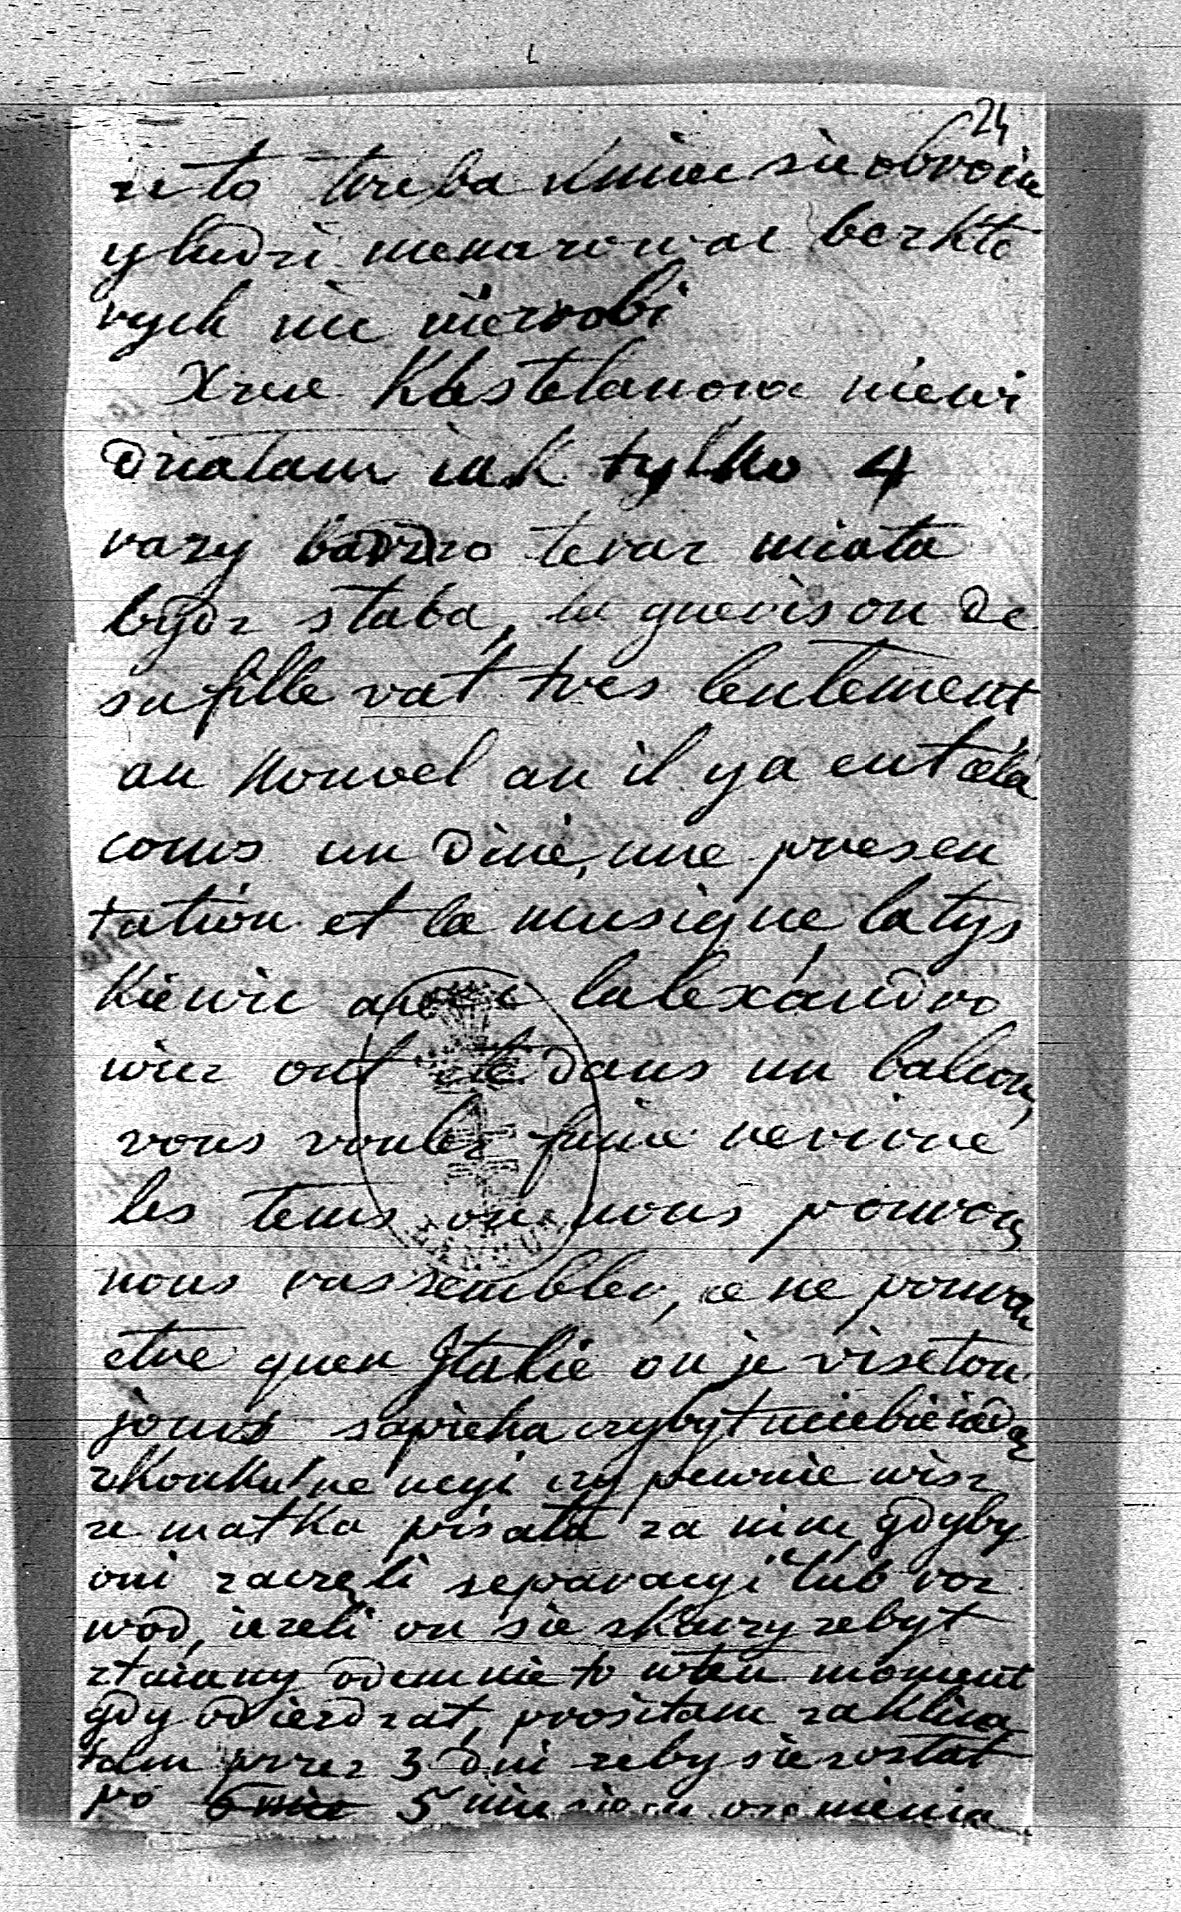 24
ze to treba umiec sie obroic
y ludzi menazowac bez kto
rych nic niezrobi
Xzne Kastelanowa niewi
dzialam iak tylko 4
razy bardzo teraz miala
bydz slaba, la guerison de
sa fille vat tres lentement
au nouvel an il y a eut a la
cours un diné, une presen
tation et la musique la tys
kiewic avec lalexandro
wicz ont eté dans un balcon,
vous voulez faire revivre
les tems ou nous pouvons
nous rassembler, ce ne poura
etre quen Italie ou je vise tou
jours sapieha czy byt
ze matka pisala za nim gdyby
oni zaczęli separacyi lub roz
wod, iezeli on sie skarzy ze byt
odemnie to w ten moment
gdy odiezdzat, prosilam zaklina
lam przez 3 dni zeby sie zostat
po 5